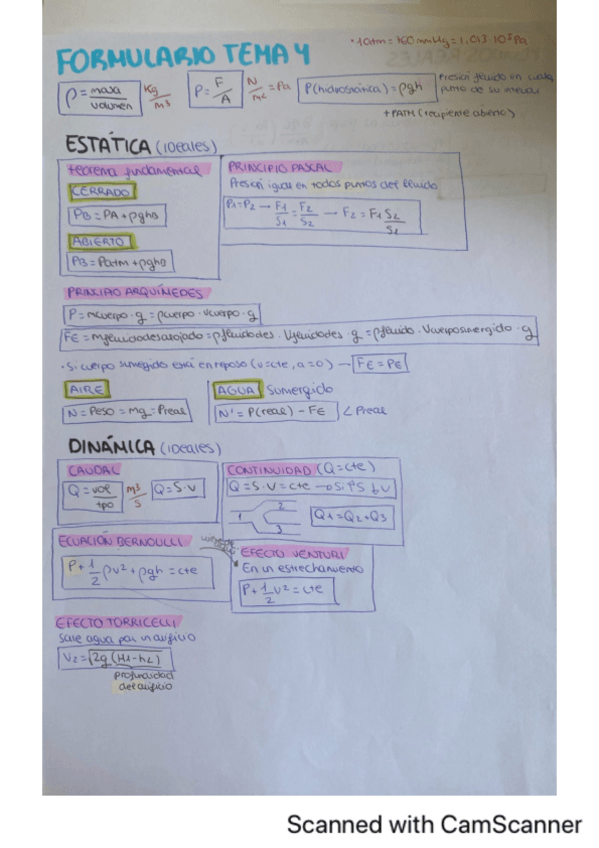 · 1atm = 760 mmHg = 1,013·10⁵ Pa
FORMULARIO TEMA 4
ρ = masa/volumen Kg/m³ P = F/A N/m² = Pa P(hidrostática) = ρgh Presión fluido en cualq
punto de su
+ PATM (recipiente abierto)
ESTÁTICA (ideales)
teorema fundamental
CERRADO
PB = PA + ρghB
ABIERTO
PB = Patm + ρghB
PRINCIPIO PASCAL
Presión igual en todos puntos del fluido
P1 = P2 → F1/S1 = F2/S2 → F2 = F1 S2/S1
PRINCIPIO ARQUÍMEDES
P = mcuerpo · g = ρcuerpo · Vcuerpo · g
FE = mfluidodesalojado = ρfluidodes · Vfluidodes · g = ρfluido · Vcuerposumergido · g
· Si cuerpo sumergido está en reposo (v=cte, a=0) → FE = PE
AIRE
N = Peso = mg = Preal
AGUA Sumergido
N' = P(real) - FE < Preal
DINÁMICA (ideales)
CAUDAL
Q = vol/tpo m³/s Q = S·V
CONTINUIDAD (Q=cte)
Q = S·V = cte → Si ↑S ↓V
1 2 3 Q1 = Q2 + Q3
ECUACIÓN BERNOULLI
P + 1/2 ρv² + ρgh = cte
EFECTO VENTURI
En un estrechamiento
P + 1/2 v² = cte
EFECTO TORRICELLI
Sale agua por un orificio
V2 = √2g(H1-h2)
profundidad
del orificio
Scanned with CamScanner